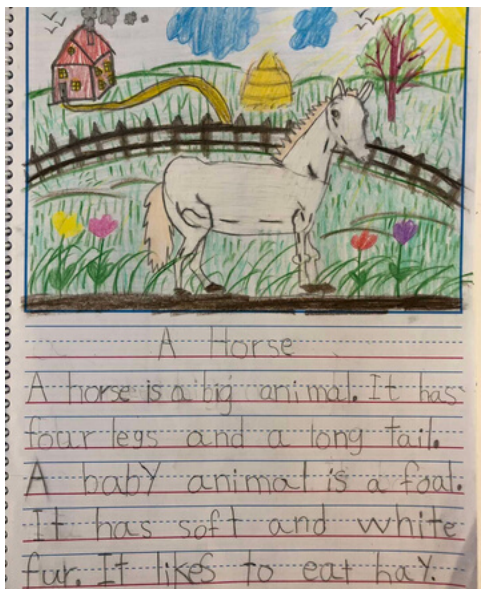 A Horse
A horse is a big animal. It has
four legs and a long tail.
A baby animal is a foal.
It has soft and white
fur. It likes to eat hay.